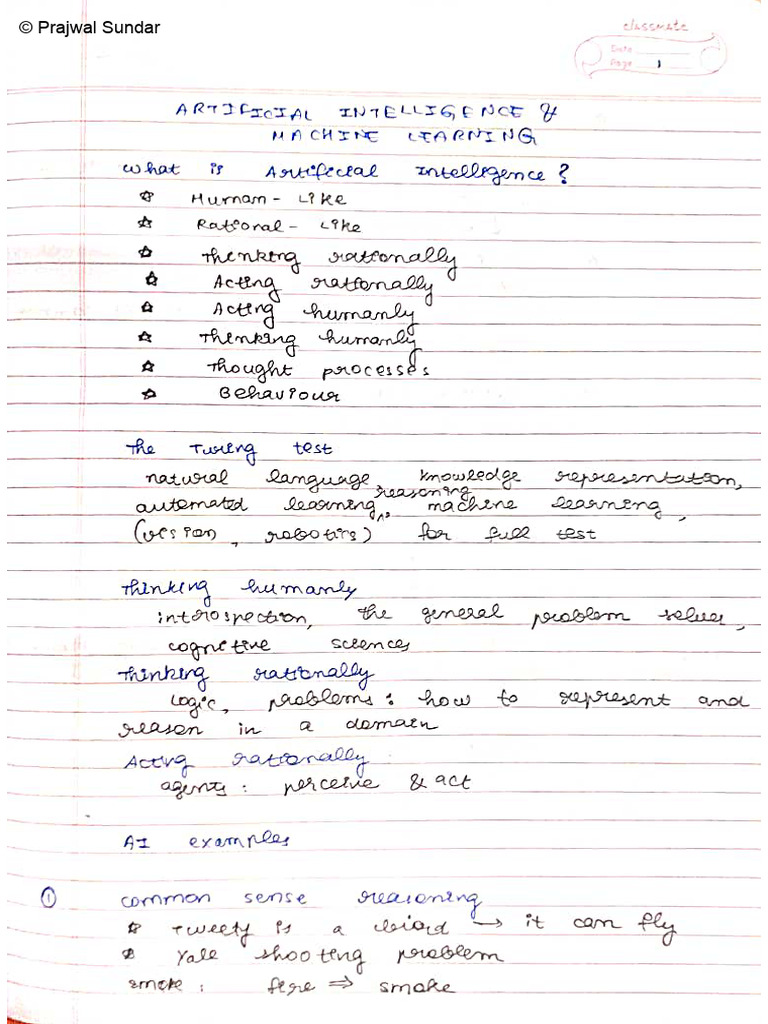 © Prajwal Sundar
classmate
Date
Page 1
ARTIFICIAL INTELLIGENCE &
MACHINE LEARNING
What is Artificial Intelligence?
☆ Human - Like
☆ Rational - Like
☆ Thinking rationally
☆ Acting rationally
☆ Acting humanly
☆ Thinking humanly
☆ Thought processes
☆ Behaviour
The Turing test
natural language, knowledge representation,
reasoning
automated learning, ^, machine learning,
(vision, robotics) for full test
Thinking humanly
introspection, the general problem solver,
cognitive sciences
Thinking rationally
Logic, problems: how to represent and
reason in a domain
Acting rationally
agents: perceive & act
AI examples
① common sense reasoning
☆ Tweety is a bird → it can fly
☆ Yale shooting problem
smoke: fire ⇒ smoke